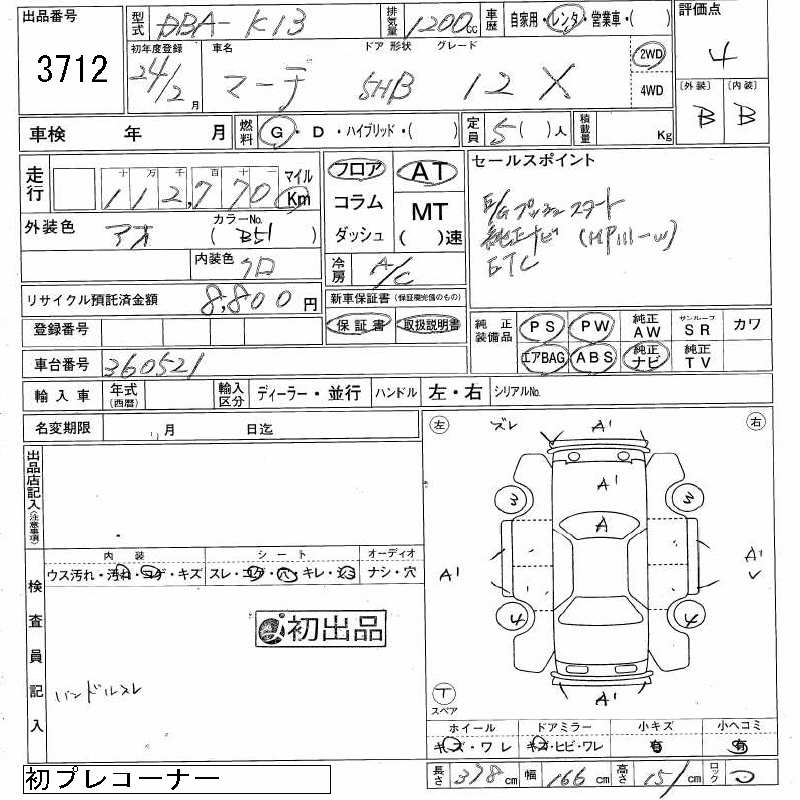 出品番号 3712
型式 DBA-K13 排気量 1200cc 車歴 自家用・レンタ・営業車・( ) 評価点 4
初年度登録 24/2月 車名 マーチ ドア 形状 5HB グレード 12X 2WD 4WD
〔外装〕 B 〔内装〕 B
車検 年 月 燃料 G・D・ハイブリッド・( ) 定員 5( )人 積載量 Kg
走行 十万千百十一 112,770 マイル Km
フロア コラム ダッシュ
AT MT ( )速
セールスポイント
E/Gプッシュスタート
純正ナビ (MP111-W)
ETC
外装色 アオ カラーNo. (B51)
内装色 クロ
冷房 A/C
リサイクル預託済金額 8,800円
新車保証書(保証継承値のもの)
保証書 取扱説明書
登録番号
純正装備品 PS PW 純正AW サンルーフSR カワ
エアBAG ABS 純正ナビ 純正TV
車台番号 360521
輸入車 年式(西暦) 輸入区分 ディーラー・並行 ハンドル 左・右 シリアルNo.
名変期限 月 日迄
出品店記入(注意事項)
左 ズレ A' 右
A'
3 3
A
A' A'
4 4
A'
T スペア
検査員記入
内装 シート オーディオ
ウス汚れ・汚れ・コゲ・キズ スレ・コゲ・穴・キレ・シミ ナシ・穴
初出品
ハンドルスレ
ホイール ドアミラー 小キズ 小ヘコミ
キズ・ワレ キズ・ヒビ・ワレ 有 有
初プレコーナー
長さ 378cm 幅 166cm 高さ 151cm ロック